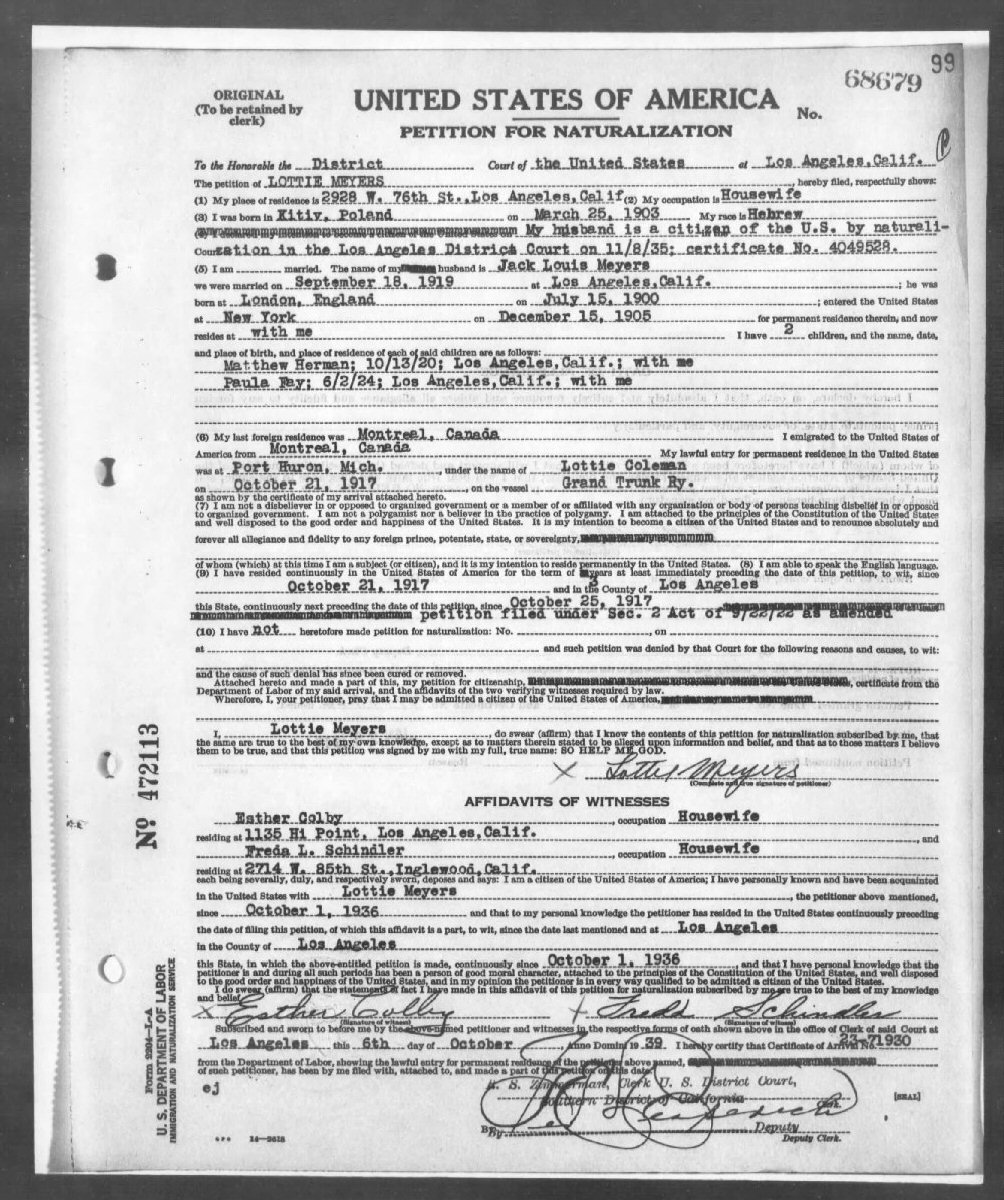 99
68679
ORIGINAL
(To be retained by
clerk)
UNITED STATES OF AMERICA
No.
PETITION FOR NATURALIZATION
To the Honorable the District Court of the United States at Los Angeles, Calif.
The petition of LOTTIE MEYERS, hereby filed, respectfully shows:
(1) My place of residence is 2928 W. 76th St., Los Angeles, Calif (2) My occupation is Housewife
(3) I was born in Kitiv, Poland on March 25, 1903 My race is Hebrew
My husband is a citizen of the U.S. by naturali-
zation in the Los Angeles District Court on 11/8/35; certificate No. 4049528.
(5) I am married. The name of my husband is Jack Louis Meyers
we were married on September 18, 1919 at Los Angeles, Calif.; he was
born at London, England on July 15, 1900; entered the United States
at New York on December 15, 1905 for permanent residence therein, and now
resides at with me I have 2 children, and the name, date,
and place of birth, and place of residence of each of said children are as follows:
Matthew Herman; 10/13/20; Los Angeles, Calif.; with me
Paula Fay; 6/2/24; Los Angeles, Calif.; with me
(6) My last foreign residence was Montreal, Canada I emigrated to the United States of
America from Montreal, Canada My lawful entry for permanent residence in the United States
was at Port Huron, Mich., under the name of Lottie Coleman
on October 21, 1917, on the vessel Grand Trunk Ry.
as shown by the certificate of my arrival attached hereto.
(7) I am not a disbeliever in or opposed to organized government or a member of or affiliated with any organization or body of persons teaching disbelief in or opposed
to organized government. I am not a polygamist nor a believer in the practice of polygamy. I am attached to the principles of the Constitution of the United States
and well disposed to the good order and happiness of the United States. It is my intention to become a citizen of the United States and to renounce absolutely and
forever all allegiance and fidelity to any foreign prince, potentate, state, or sovereignty,
of whom (which) at this time I am a subject (or citizen), and it is my intention to reside permanently in the United States. (8) I am able to speak the English language.
(9) I have resided continuously in the United States of America for the term of 3 years at least immediately preceding the date of this petition, to wit, since
October 21, 1917 and in the County of Los Angeles
this State, continuously next preceding the date of this petition, since October 25, 1917
petition filed under Sec. 2 Act of 9/22/22 as amended
(10) I have not heretofore made petition for naturalization: No. , on
at and such petition was denied by that Court for the following reasons and causes, to wit:
and the cause of such denial has since been cured or removed.
Attached hereto and made a part of this, my petition for citizenship, certificate from the
Department of Labor of my said arrival, and the affidavits of the two verifying witnesses required by law.
Wherefore, I, your petitioner, pray that I may be admitted a citizen of the United States of America,
I, Lottie Meyers, do swear (affirm) that I know the contents of this petition for naturalization subscribed by me, that
the same are true to the best of my own knowledge, except as to matters therein stated to be alleged upon information and belief, and that as to those matters I believe
them to be true, and that this petition was signed by me with my full, true name: SO HELP ME GOD.
X Lottie Meyers
(Complete and true signature of petitioner)
AFFIDAVITS OF WITNESSES
Esther Colby, occupation Housewife
residing at 1135 Hi Point, Los Angeles, Calif., and
Freda L. Schindler, occupation Housewife
residing at 2714 W. 85th St., Inglewood, Calif.
each being severally, duly, and respectively sworn, deposes and says: I am a citizen of the United States of America; I have personally known and have been acquainted
in the United States with Lottie Meyers, the petitioner above mentioned,
since October 1, 1936 and that to my personal knowledge the petitioner has resided in the United States continuously preceding
the date of filing this petition, of which this affidavit is a part, to wit, since the date last mentioned and at Los Angeles
in the County of Los Angeles
this State, in which the above-entitled petition is made, continuously since October 1, 1936, and that I have personal knowledge that the
petitioner is and during all such periods has been a person of good moral character, attached to the principles of the Constitution of the United States, and well disposed
to the good order and happiness of the United States, and in my opinion the petitioner is in every way qualified to be admitted a citizen of the United States.
I do swear (affirm) that the statements of fact I have made in this affidavit of this petition for naturalization subscribed by me are true to the best of my knowledge
and belief
X Esther Colby X Freda Schindler
(Signature of witness) (Signature of witness)
Subscribed and sworn to before me by the above-named petitioner and witnesses in the respective forms of oath shown above in the office of Clerk of said Court at
Los Angeles this 6th day of October, Anno Domini 19 39. I hereby certify that Certificate of Arrival No. 23-71930
from the Department of Labor, showing the lawful entry for permanent residence of the petitioner above named,
of such petitioner, has been by me filed with, attached to, and made a part of this petition on this date
ej
R. S. Zimmerman, Clerk U. S. District Court,
Southern District of California
Clerk.
[SEAL]
By Deputy
Deputy Clerk.
GPO 14—2618
No 472113
Form 2204-L-A
U. S. DEPARTMENT OF LABOR
IMMIGRATION AND NATURALIZATION SERVICE